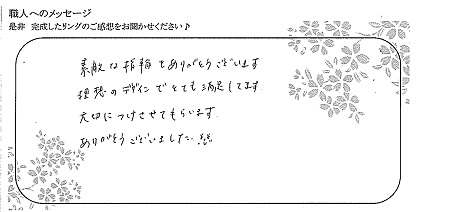 職人へのメッセージ
是非 完成したリングのご感想をお聞かせください♪
素敵な指輪をありがとうございます
理想のデザインでとても満足してます
大切につけさせてもらいます。
ありがとうございました。